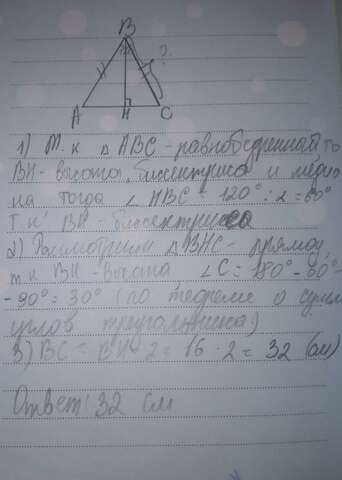 B
?
A
H
C
1) Т. к △ ABC - равнобедренный то
BH - высота, биссектриса и медиа
на тогда ∠ HBC = 120° : 2 = 60°
Т к BH - биссектриса
2) Рассмотрим △BHC - прямоу,
т к BH - высота ∠C = 180° - 60° -
- 90° = 30° (по теореме о сумм
углов треугольника)
3) BC = BH · 2 = 16 · 2 = 32 (см)
Ответ: 32 см